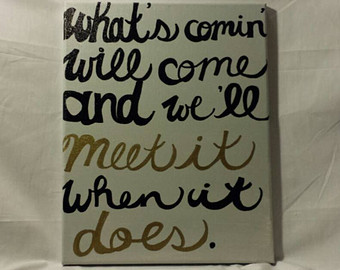 what's comin'
will come
and we'll
meet it
when it
does.